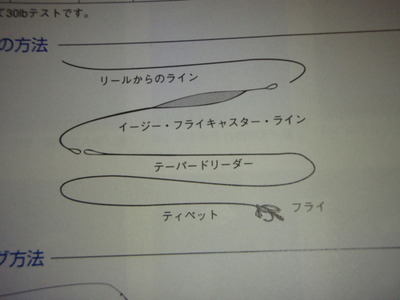 て30lbテストです。
の方法
リールからのライン
イージー・フライキャスター・ライン
テーパードリーダー
ティペット
フライ
グ方法